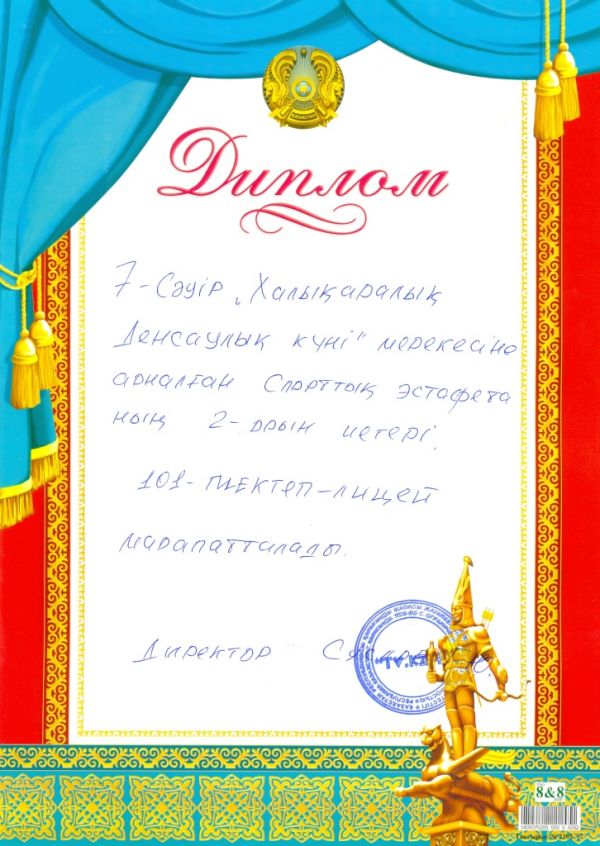 ҚАЗАҚСТАН
Диплом
7-Сәуір „Халықаралық
Денсаулық күні" мерекесіне
арналған Спорттық эстафета
ның 2-орын иегері.
101-мектеп-лицей
марапатталады.
Директор
8&8